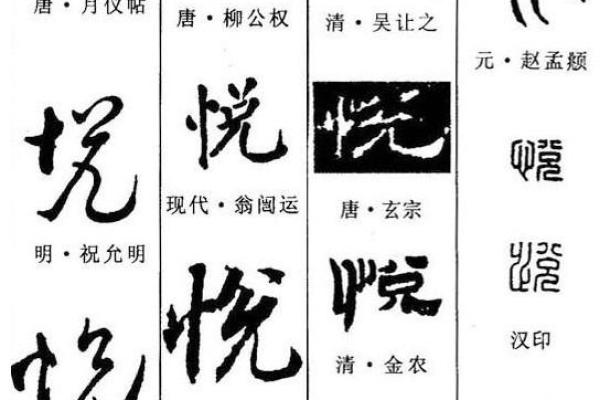 唐·月仪帖
悦
明·祝允明
悦
唐·柳公权
悦
现代·翁闿运
悦
清·吴让之
悦
唐·玄宗
悦
清·金农
元·赵孟頫
悦
悦
汉印